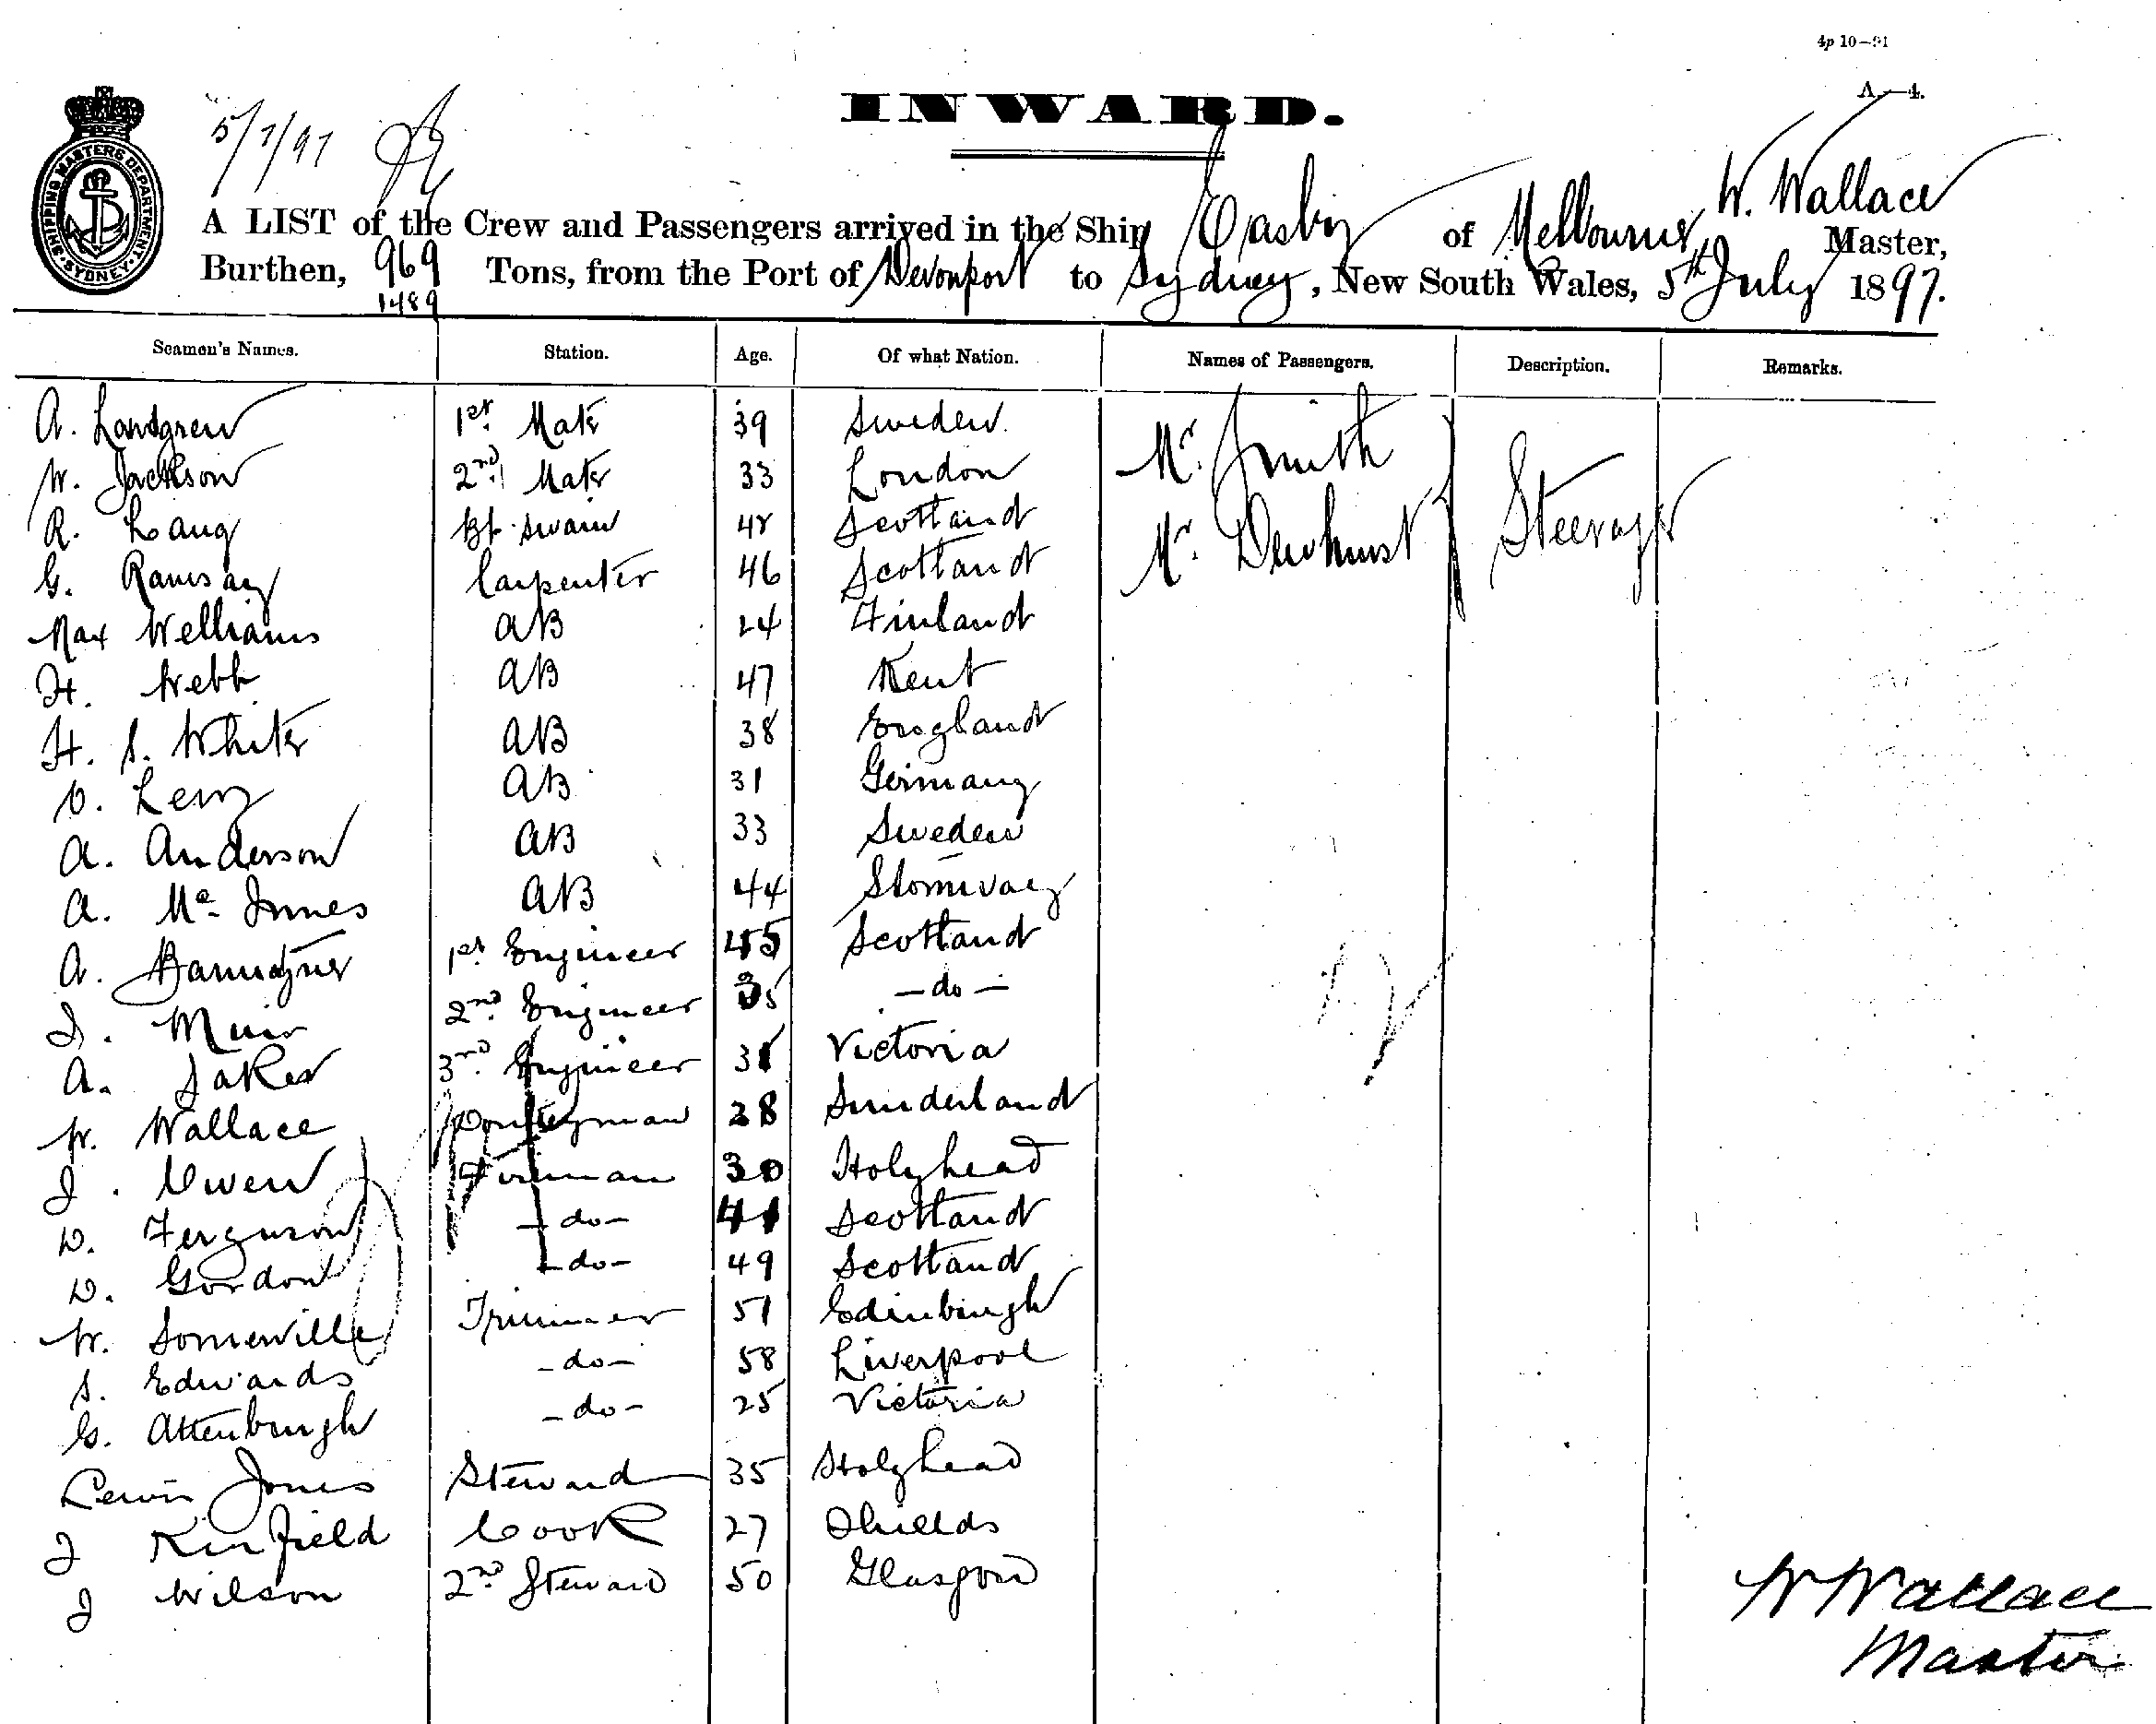 4p 10—91
A.—4.
5/7/97
INWARD.
SHIPPING MASTERS DEPARTMENT. SYDNEY.
W. Wallace
A LIST of the Crew and Passengers arrived in the Ship Easby of Melbourne, Master,
Burthen, 969 Tons, from the Port of Devonport to Sydney, New South Wales, 5th July 1897.
1489
Seamen's Names. Station. Age. Of what Nation. Names of Passengers. Description. Remarks.
A. Landgren 1st Mate 39 Sweden Mr. Smith
W. Jackson 2nd Mate 33 London Steerage
R. Lang Bt. swain 48 Scotland Mr. Dewhurst
G. Ramsay Carpenter 46 Scotland
Max Welliams AB 24 Finland
H. Webb AB 47 Kent
H. S. White AB 38 England
O. Lenz AB 31 Germany
A. Anderson AB 33 Sweden
A. Mc Innes AB 44 Stornvay
A. 1st Engineer 45 Scotland
J. Muir 2nd Engineer 35 – do –
A. Saker 3rd Engineer 31 Victoria
W. Wallace Donkeyman 28 Sunderland
J. Owen Fireman 30 Holyhead
D. Ferguson – do – 41 Scotland
D. Gordon – do – 49 Scotland
W. Somerville Trimmer 51 Edinburgh
S. Edwards – do – 58 Liverpool
G. Attenburgh – do – 25 Victoria
Lewis Jones Steward 35 Holyhead
J Kinfield Cook 27 Shields
J Wilson 2nd Steward 50 Glasgow
W Wallace
Master